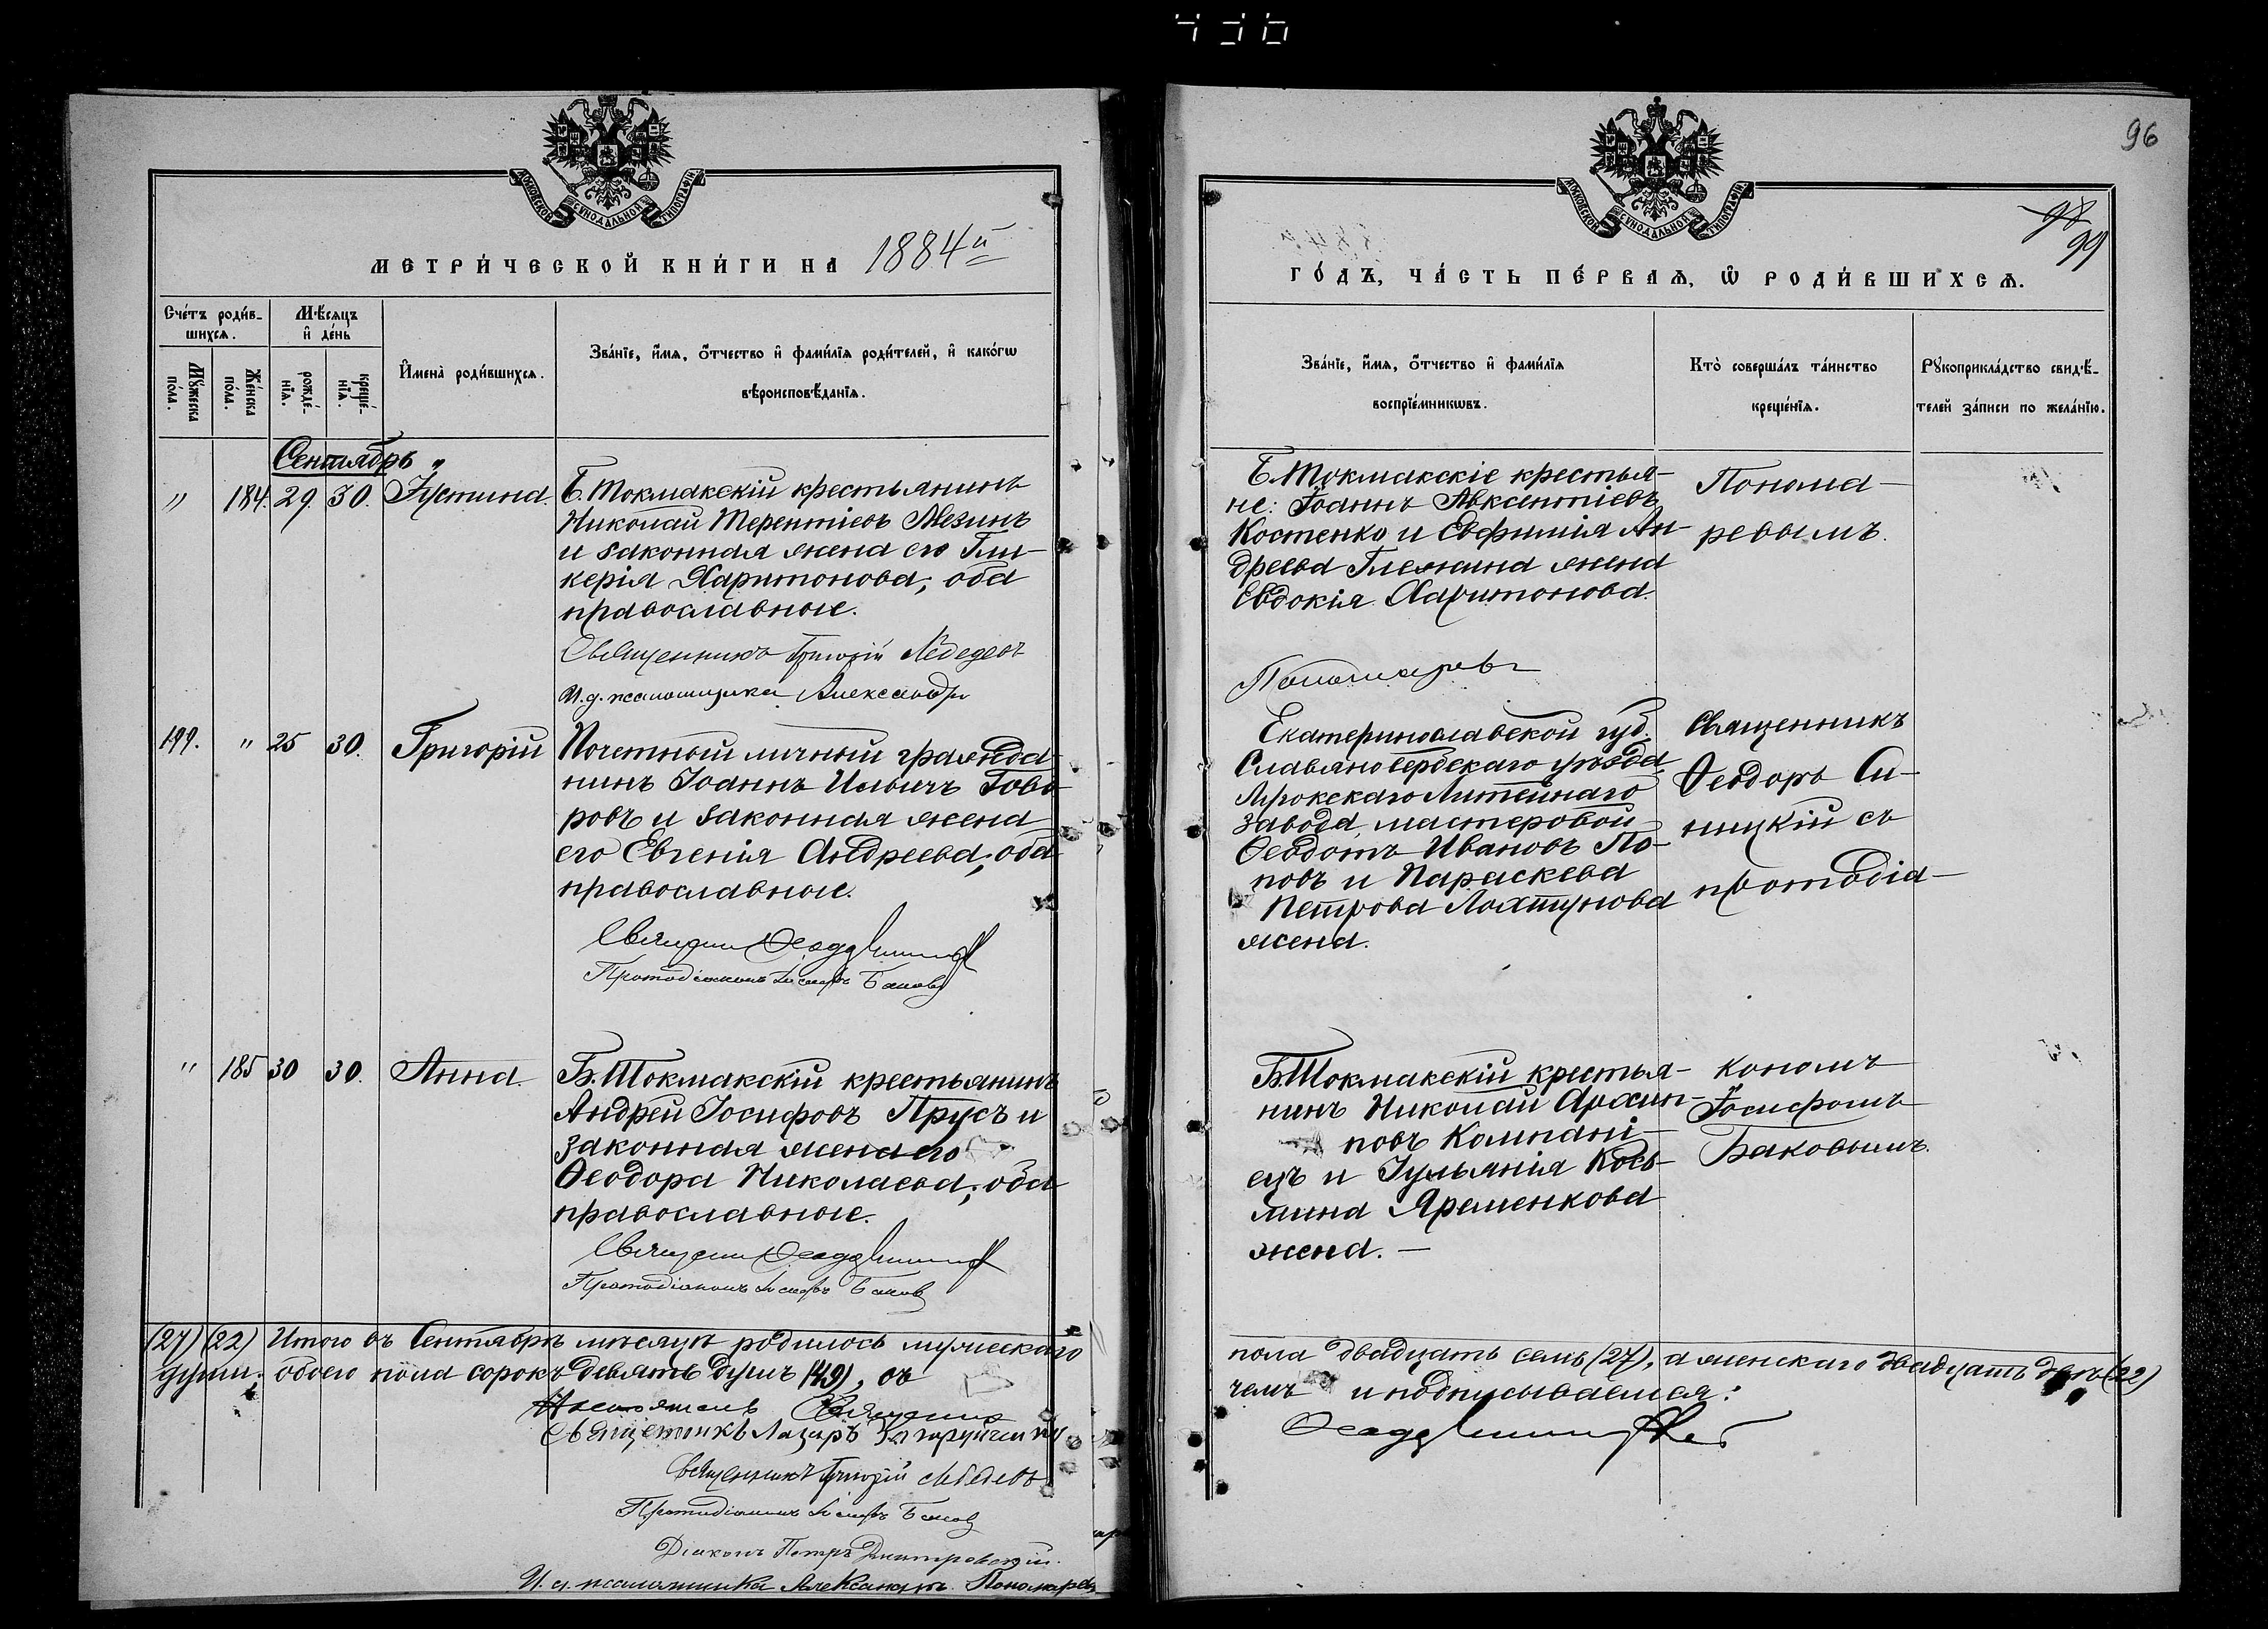 436
МОСКОВСКОЙ СУНОДАЛЬНОЙ ТИПОГРАФІИ
МЕТРИЧЕСКОЙ КНИГИ НА 1884й
Счетъ родив-
шихся.
Мѣсяцъ
и день
Мужеска
пола.
Женска
пола.
рожде-
нія.
креще-
нія.
Имена родившихся.
Званіе, имя, отчество и фамилія родителей, и какогѡ
вѣроисповѣданія.
Сентябрь
" 184. 29. 30. Іустина.
Б. Токмакскій крестьянинъ
Николай Терентіевъ Мезинъ
и законная жена его Гли-
керія Харитонова; оба
православные.
Священникъ Григорій Лебедевъ
И.д. псаломщика Александръ
199. " 25 30. Григорій
Почетный личный гражда-
нинъ Іоаннъ Ильичъ Гово-
ровъ и законная жена
его Евгенія Андреева; оба
православные.
Протодіаконъ Іосифъ Баковъ
" 185 30 30. Анна.
Б. Токмакскій крестьянинъ
Андрей Іосифовъ Прусъ и
законная жена его
Ѳеодора Николаева; оба
православные.
Протодіаконъ Іосифъ Баковъ
(27) (22) Итого въ Сентябрѣ мѣсяцѣ родилось мужескаго
души; обоего пола сорокъ девять душъ (49), въ
Настоятель Священникъ
Священникъ Лазарь
Священникъ Григорій Лебедевъ
Протодіаконъ Іосифъ Баковъ
Діаконъ Петръ Дмитровскій.
И. д. псаломщика Александръ Пономаревъ
96
МОСКОВСКОЙ СУНОДАЛЬНОЙ ТИПОГРАФІИ
98
99
ГОДЪ, ЧАСТЬ ПЕРВАЯ, Ѡ РОДИВШИХСЯ.
Званіе, имя, отчество и фамилія
воспріемникѡвъ.
Кто совершалъ таинство
крещенія.
Рукоприкладство свидѣ-
телей записи по желанію.
Б. Токмакскіе крестья-
не: Іоаннъ Авксентіевъ
Костенко и Евфимія Ан-
дреева жена
Евдокія Харитонова.
Понома-
ревымъ.
Пономаревъ
Екатеринославской губ.
Славяносербскаго уѣзда,
Литейнаго
завода, мастеровой
Ѳеодотъ Ивановъ По-
повъ и Параскева
Петрова Лохтунова
жена.
Священникъ
Ѳеодоръ Си-
ницкій съ
протодіа-
Б. Токмакскій крестья-
нинъ Николай Архип-
повъ Компані-
ецъ и Іульянія Кось-
мина Яременкова
жена. —
кономъ
Іосифомъ
Баковымъ.
пола двадцать семь (27), а женскаго двадцать двѣ (22)
чемъ и подписываемся: